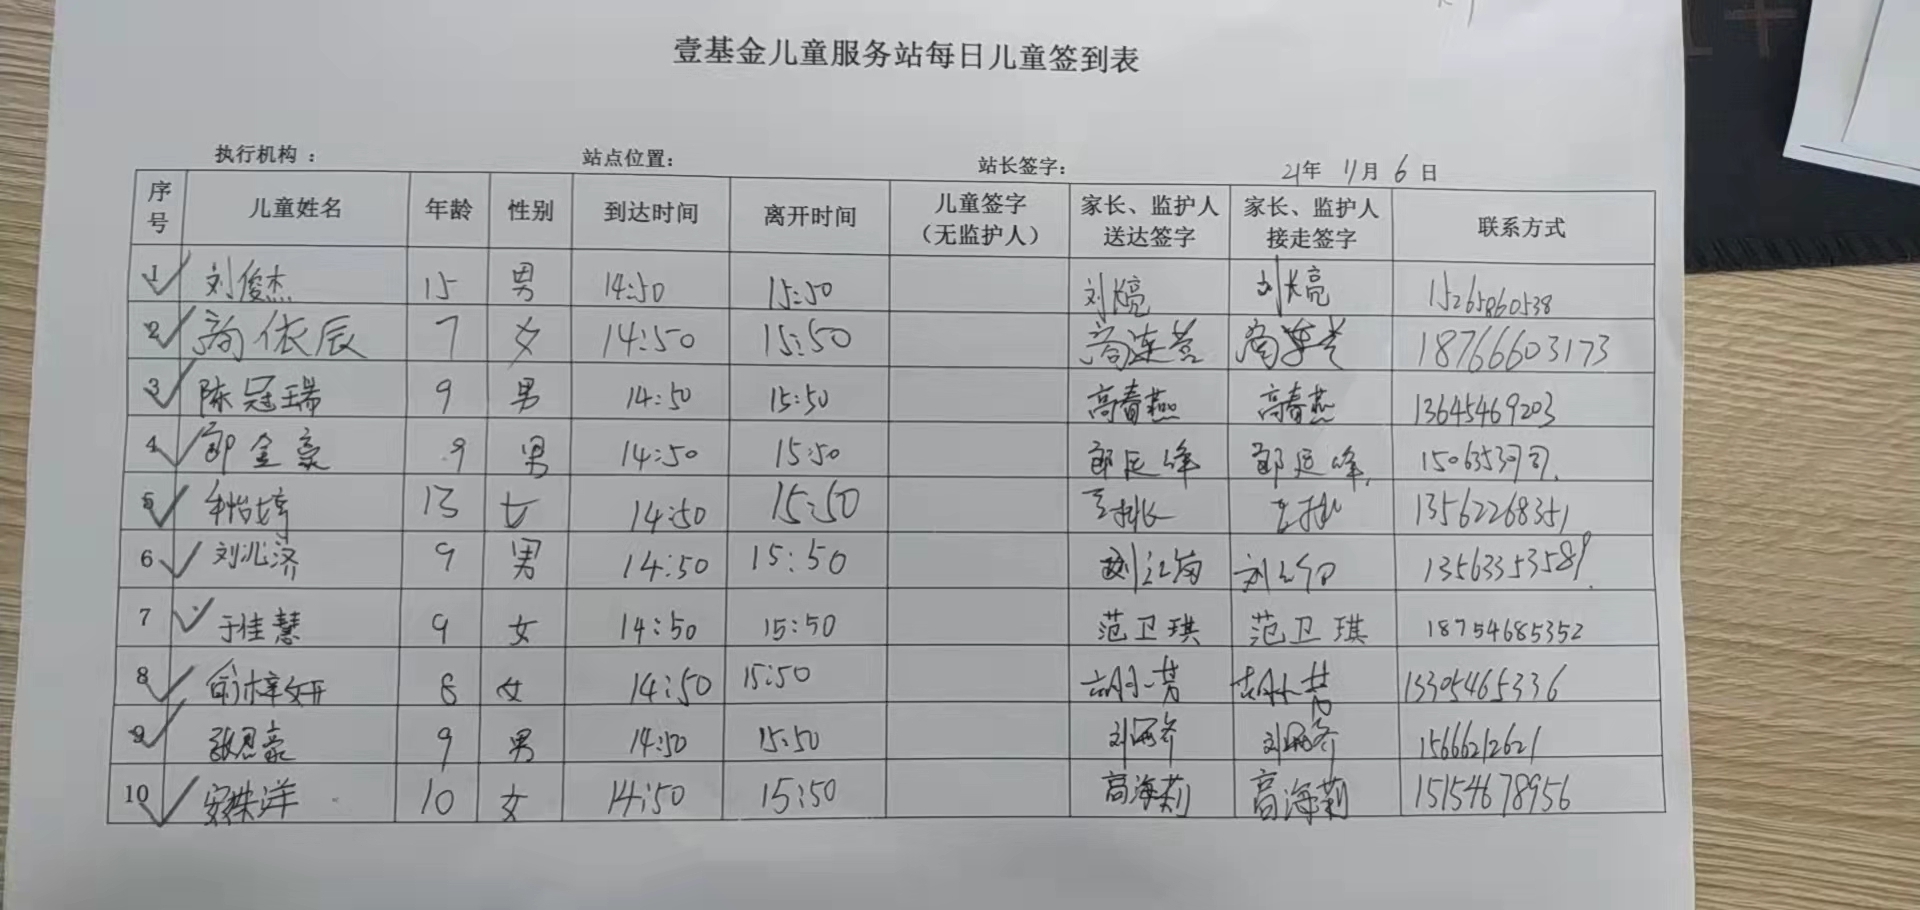 壹基金儿童服务站每日儿童签到表
执行机构： 站点位置： 站长签字： 21年 11月 6日
序号 儿童姓名 年龄 性别 到达时间 离开时间 儿童签字（无监护人） 家长、监护人送达签字 家长、监护人接走签字 联系方式
1 刘俊杰 15 男 14:50 15:50 刘长亮 刘长亮 15265860538
2 依辰 7 女 14:50 15:50 18766603173
3 陈冠瑞 9 男 14:50 15:50 高春燕 高春燕 13645469203
4 邵金豪 9 男 14:50 15:50 邵廷峰 邵廷峰
5 13 女 14:50 15:50 13562268351
6 刘兆济 9 男 14:50 15:50 13563353589
7 于佳慧 9 女 14:50 15:50 范卫琪 范卫琪 18754685352
8 俞梓妍 8 女 14:50 15:50 胡小芳 胡小芳 13305465336
9 张恩豪 9 男 14:50 15:50 15666212621
10 洋 10 女 14:50 15:50 高海莉 高海莉 15154678956